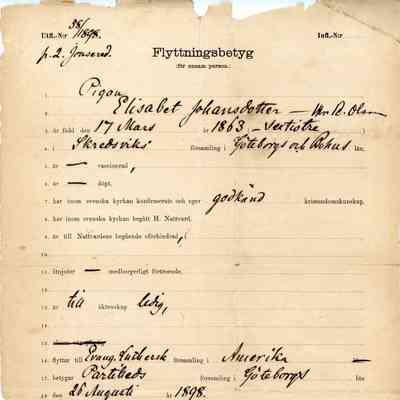 Utfl.-Nr 38/1898. Infl.-Nr
p. 2. Jonsered.
Flyttningsbetyg
(för ensam person.)
1. Pigan
2. Elisabet Johansdotter —
3. är född den 17 Mars år 1863, — sextiotre )
4. i Skredsviks församling i Göteborgs och Bohus län,
5. är — vaccinerad,
6. är — döpt,
7. har inom svenska kyrkan konfirmerats och eger godkänd kristendomskunskap,
8. har inom svenska kyrkan begått H. Nattvard.
9. är till Nattvardens begående oförhindrad,
10.
11. åtnjuter — medborgerligt förtroende,
12.
13. är till äktenskap ledig,
14.
15.
16. flyttar till Evang. Luthersk församling i Amerika —
17. betygar Partilleds församling i Göteborgs län
18. den 26 Augusti år 1898.